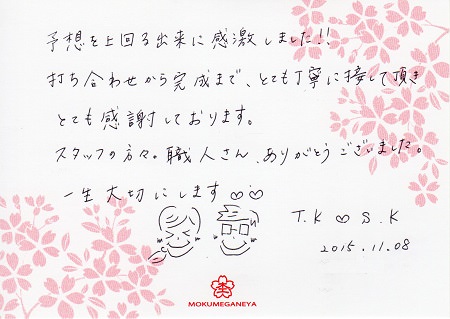 予想を上回る出来に感激しました!!
打ち合わせから完成まで、とても丁寧に接して頂き
とても感謝しております。
スタッフの方々。職人さん、ありがとうございました。
一生大切にします♡
T.K ♡ S.K
2015.11.08
MOKUMEGANEYA